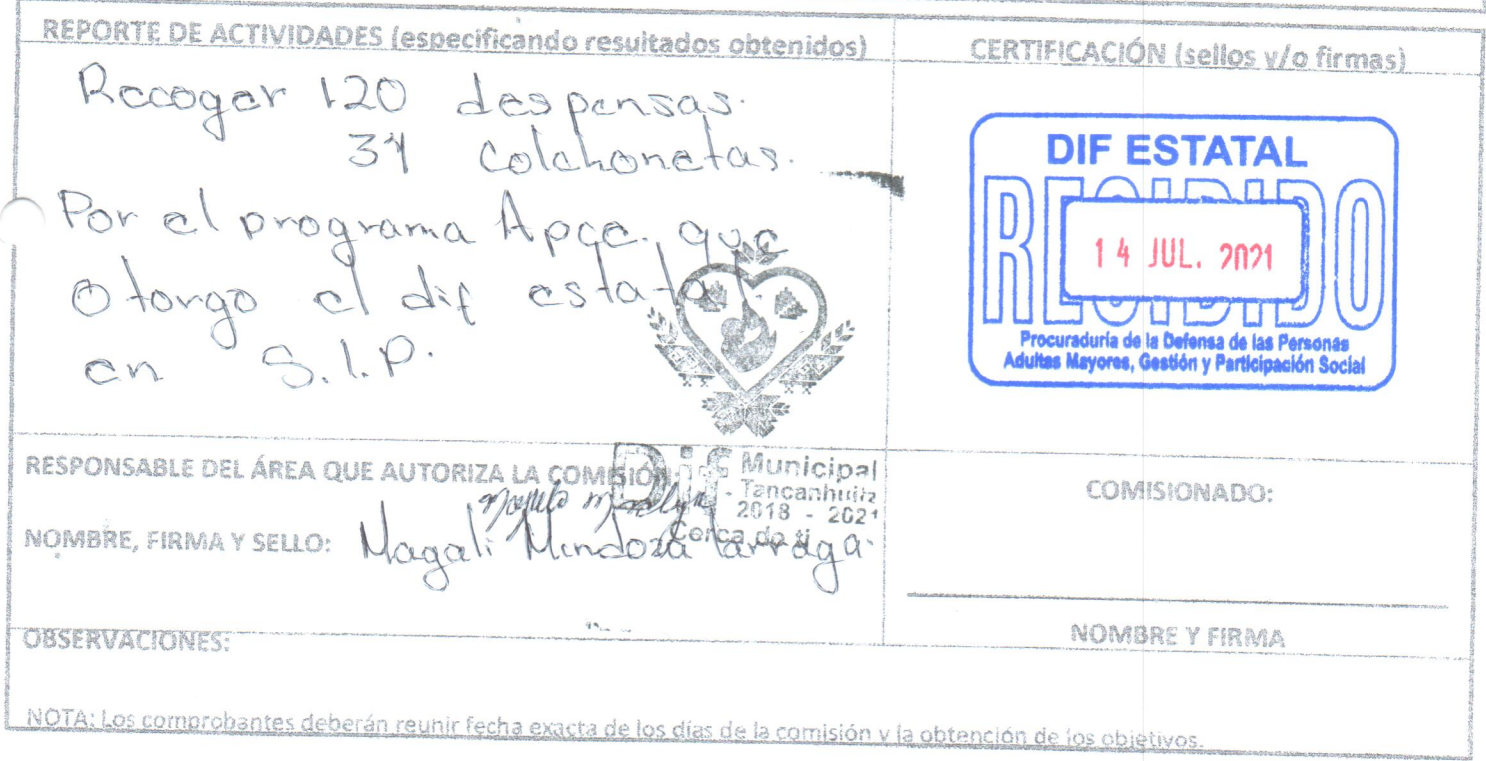 REPORTE DE ACTIVIDADES (especificando resultados obtenidos)
Recoger 120 despensas.
34 Colchonetas.
Por el programa Apce. que
Otorgo el dif estatal.
en S.L.P.
CERTIFICACIÓN (sellos y/o firmas)
DIF ESTATAL
RECIBIDO
14 JUL. 2021
Procuraduría de la Defensa de las Personas
Adultas Mayores, Gestión y Participación Social
RESPONSABLE DEL ÁREA QUE AUTORIZA LA COMISIÓN:
Dif Municipal
Tancanhuitz
2018 - 2021
Cerca de ti
NOMBRE, FIRMA Y SELLO: Magali Mendoza
COMISIONADO:
NOMBRE Y FIRMA
OBSERVACIONES:
NOTA: Los comprobantes deberán reunir fecha exacta de los días de la comisión y la obtención de los objetivos.